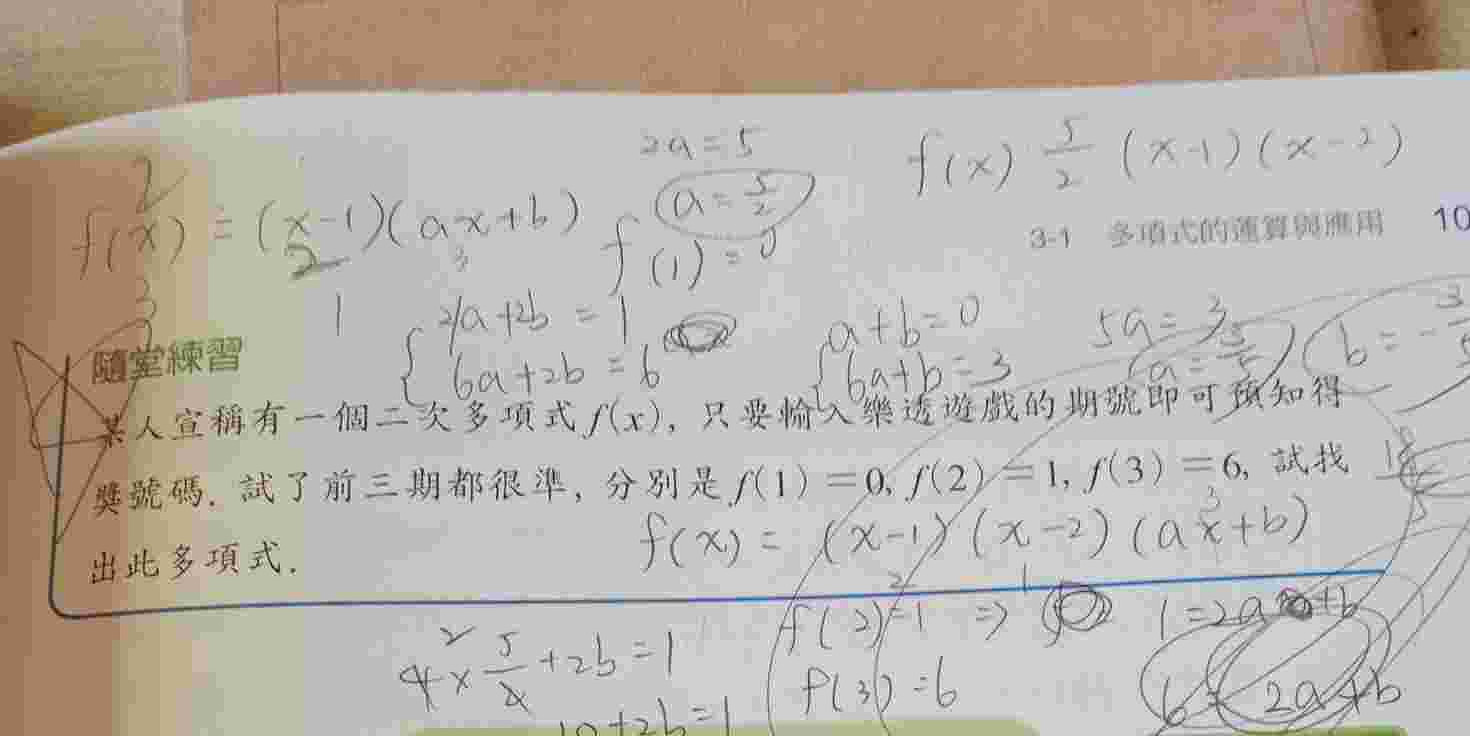 2a=5
f(x) 5/2 (x-1)(x-2)
2
f(x) = (x-1)(ax+b)
a=5/2
3-1 多項式的運算與應用 10
2
3
f(1)=0
3
1
2/a+2b=1
a+b=0
5a=3
6a+2b=6
6a+b=3
a=3/5
b=-3/5
隨堂練習
某人宣稱有一個二次多項式f(x), 只要輸入樂透遊戲的期號即可預知得
獎號碼. 試了前三期都很準, 分別是f(1)=0, f(2)=1, f(3)=6, 試找
出此多項式.
f(x) = (x-1)(x-2)(ax+b)
3
2
1
f(2)=1 =>
1=2a+b
2
4×5/2+2b=1
f(3)=6
6=2a+b
10+2b=1